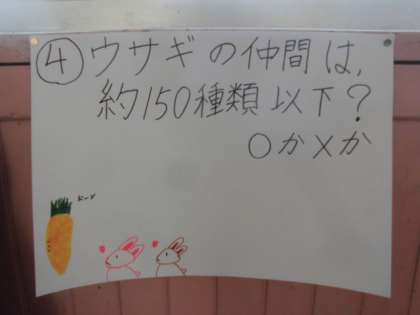 ④ウサギの仲間は,
約150種類以下?
○か×か